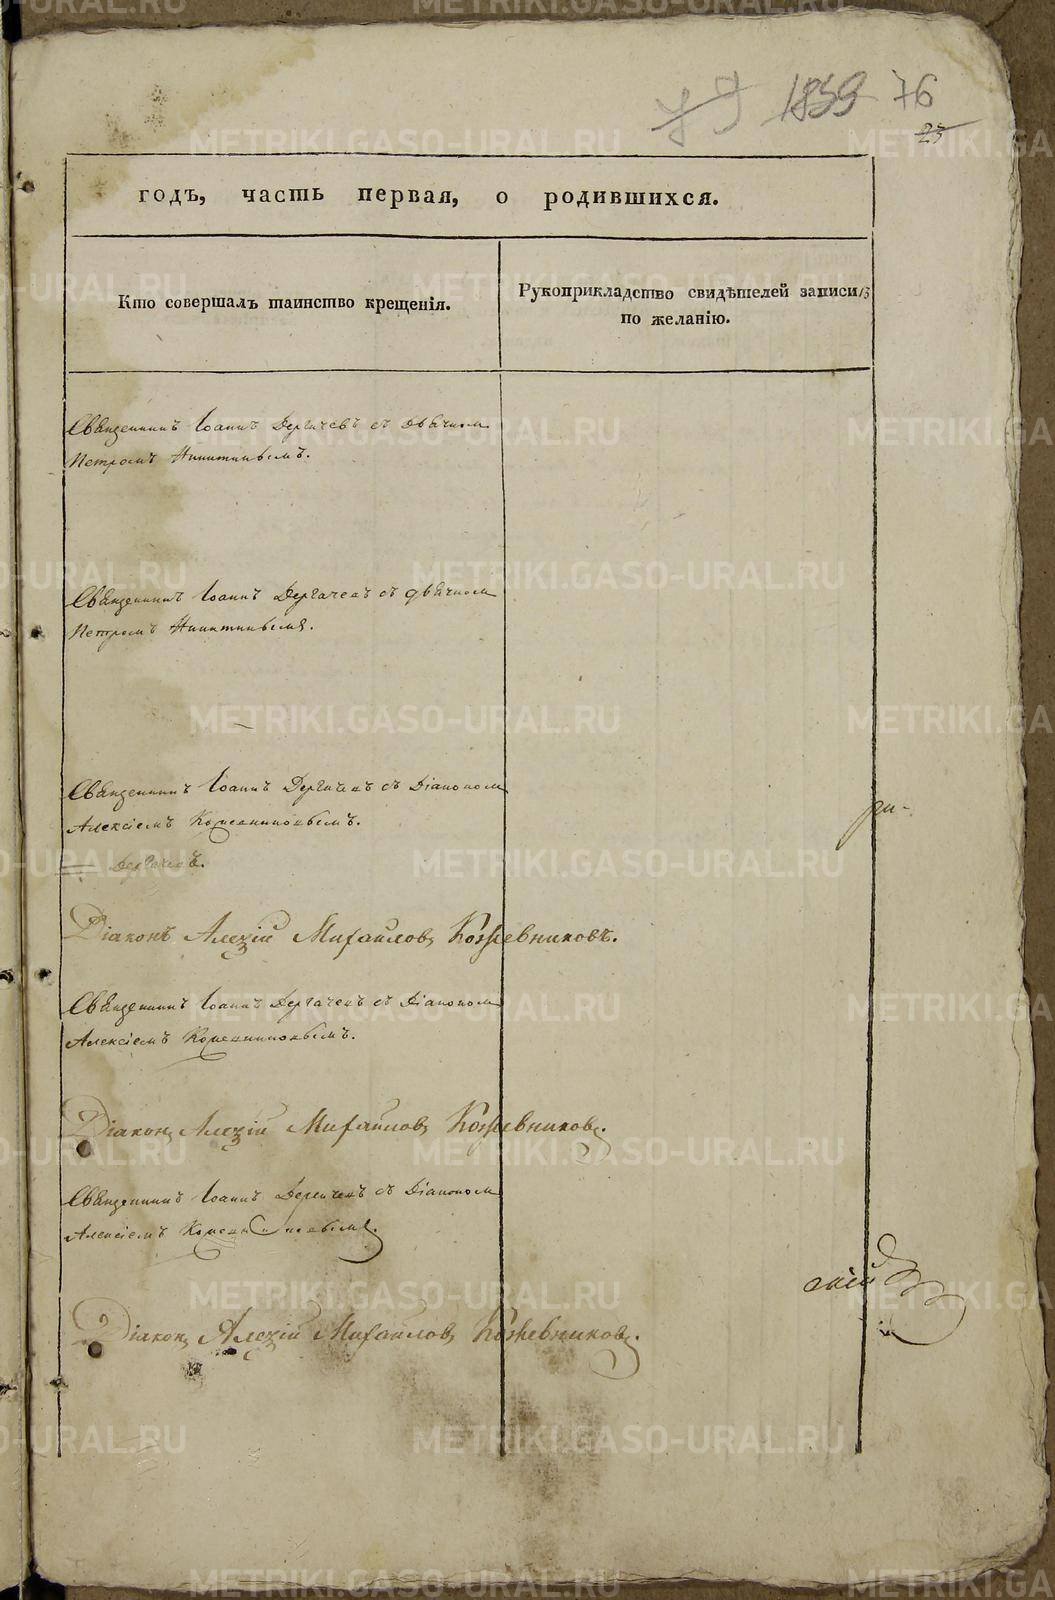 1859 76
23
годъ, часть первая, о родившихся.
Кто совершалъ таинство крещенія.
Рукоприкладство свидѣтелей записи
по желанію.
Священникъ Іоаннъ Дергачевъ съ дьячкомъ
Петромъ Никитинымъ.
Священникъ Іоаннъ Дергачевъ съ дьячкомъ
Петромъ Никитинымъ.
Священникъ Іоаннъ Дергачевъ съ Діакономъ
Алексіемъ Кожевниковымъ.
Дергачевъ.
Діаконъ Алезій Михаиловъ Кожевниковъ.
Священникъ Іоаннъ Дергачевъ съ Діакономъ
Алексіемъ Кожевниковымъ.
Діаконъ Алезій Михаиловъ Кожевниковъ.
Священникъ Іоаннъ Дергачевъ съ Діакономъ
Алексіемъ Кожевниковымъ.
скій
Діаконъ Алезій Михаиловъ Кожевниковъ.
METRIKI.GASO-URAL.RU